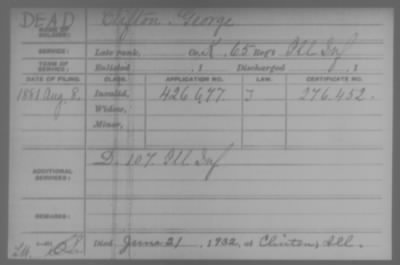 DEAD
NAME OF SOLDIER: Clifton George
SERVICE: Late rank, Co. K, 65 Reg't Ill Inf
TERM OF SERVICE: Enlisted , 1 Discharged , 1
DATE OF FILING. CLASS. APPLICATION NO. LAW. CERTIFICATE NO.
1881 Aug. 8. Invalid, 426677 J 276.452.
Widow,
Minor,
ADDITIONAL SERVICES: D. 107. Ill Inf
REMARKS:
Died June 21, 1932, at Clinton, Ill.